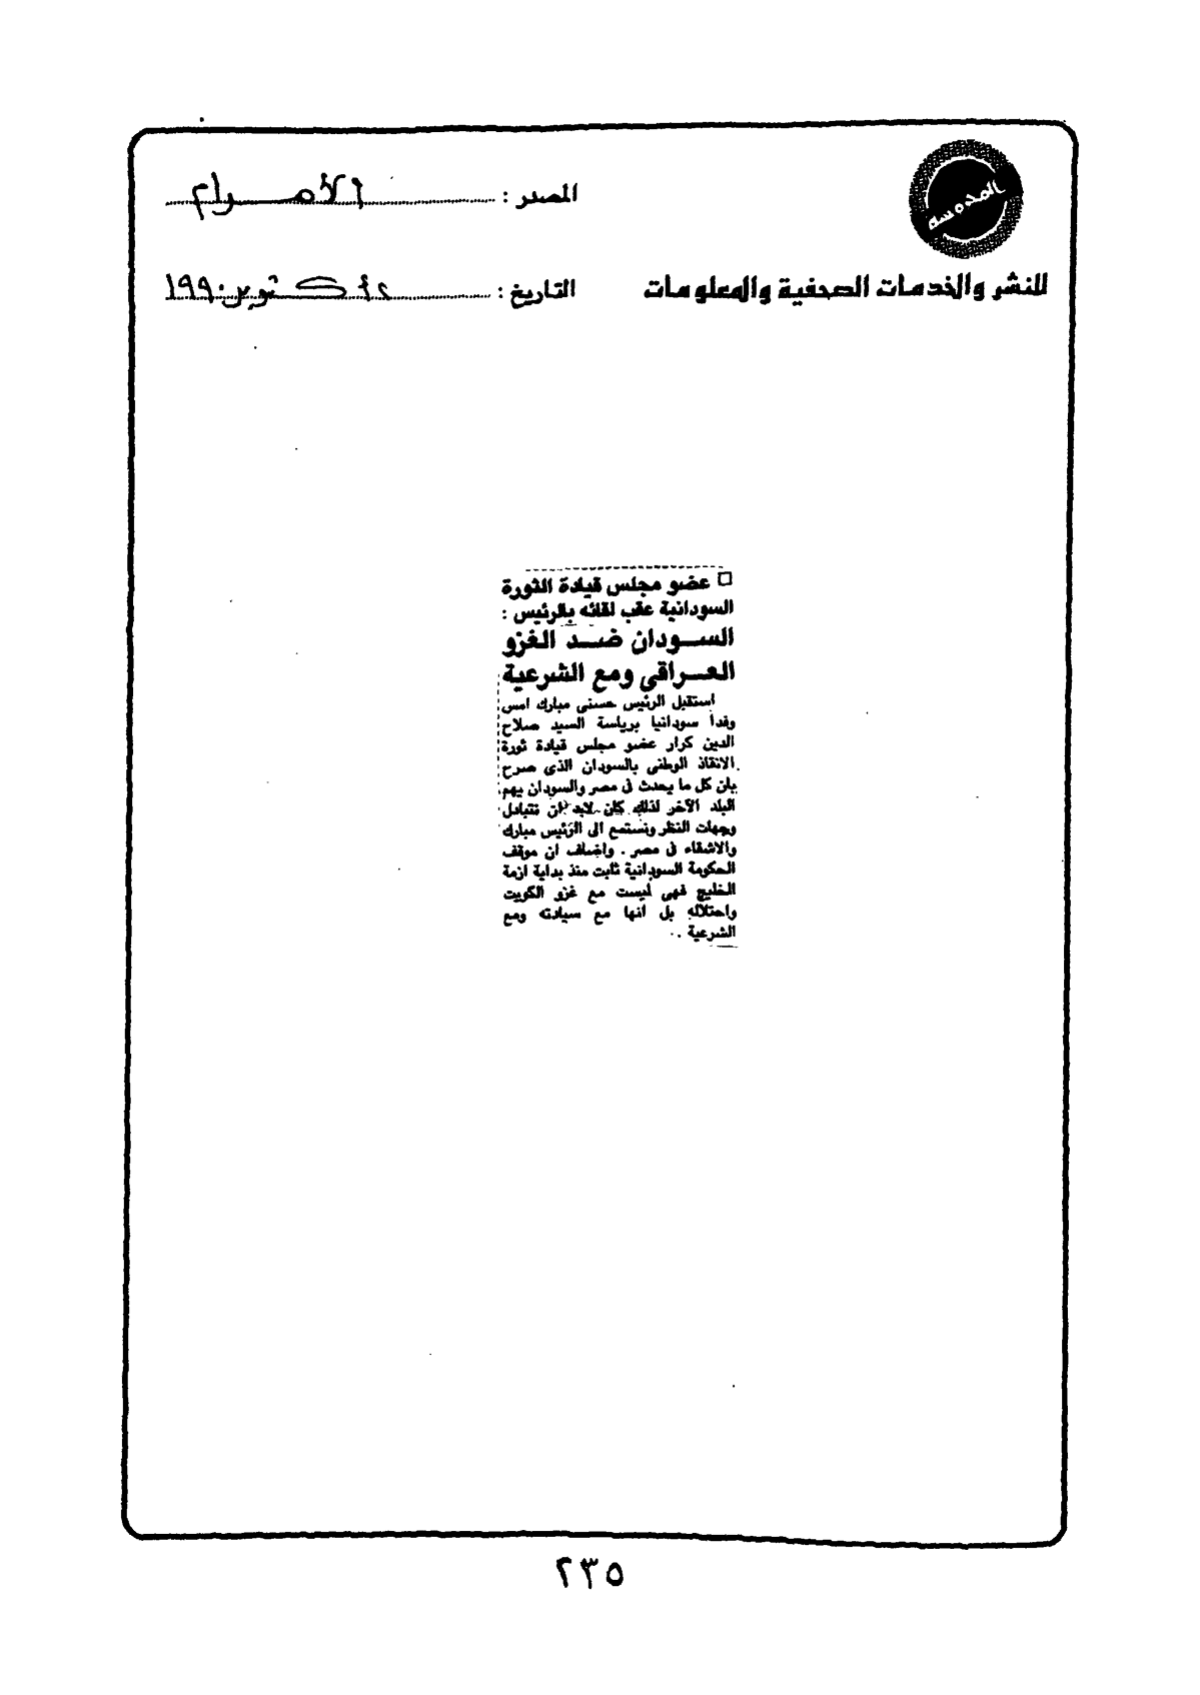 المصدر : الأهرام
للنشر والخدمات الصحفية والمعلومات
التاريخ : أكتوبر ١٩٩٠
□ عضو مجلس قيادة الثورة
السودانية عقب لقائه بالرئيس :
الســودان ضــد الغزو
العــراقى ومع الشرعية
استقبل الرئيس حسنى مبارك امس
وفدا سودانيا برياسة السيد صلاح
الدين كرار عضو مجلس قيادة ثورة
الانقاذ الوطنى بالسودان الذى صرح
بان كل ما يحدث فى مصر والسودان يهم
البلد الآخر لذلك كان لابد ان نتبادل
وجهات النظر ونستمع الى الرئيس مبارك
والاشقاء فى مصر . واضاف ان موقف
الحكومة السودانية ثابت منذ بداية ازمة
الخليج فهى ليست مع غزو الكويت
واحتلاله بل انها مع سيادته ومع
الشرعية .
٢٣٥